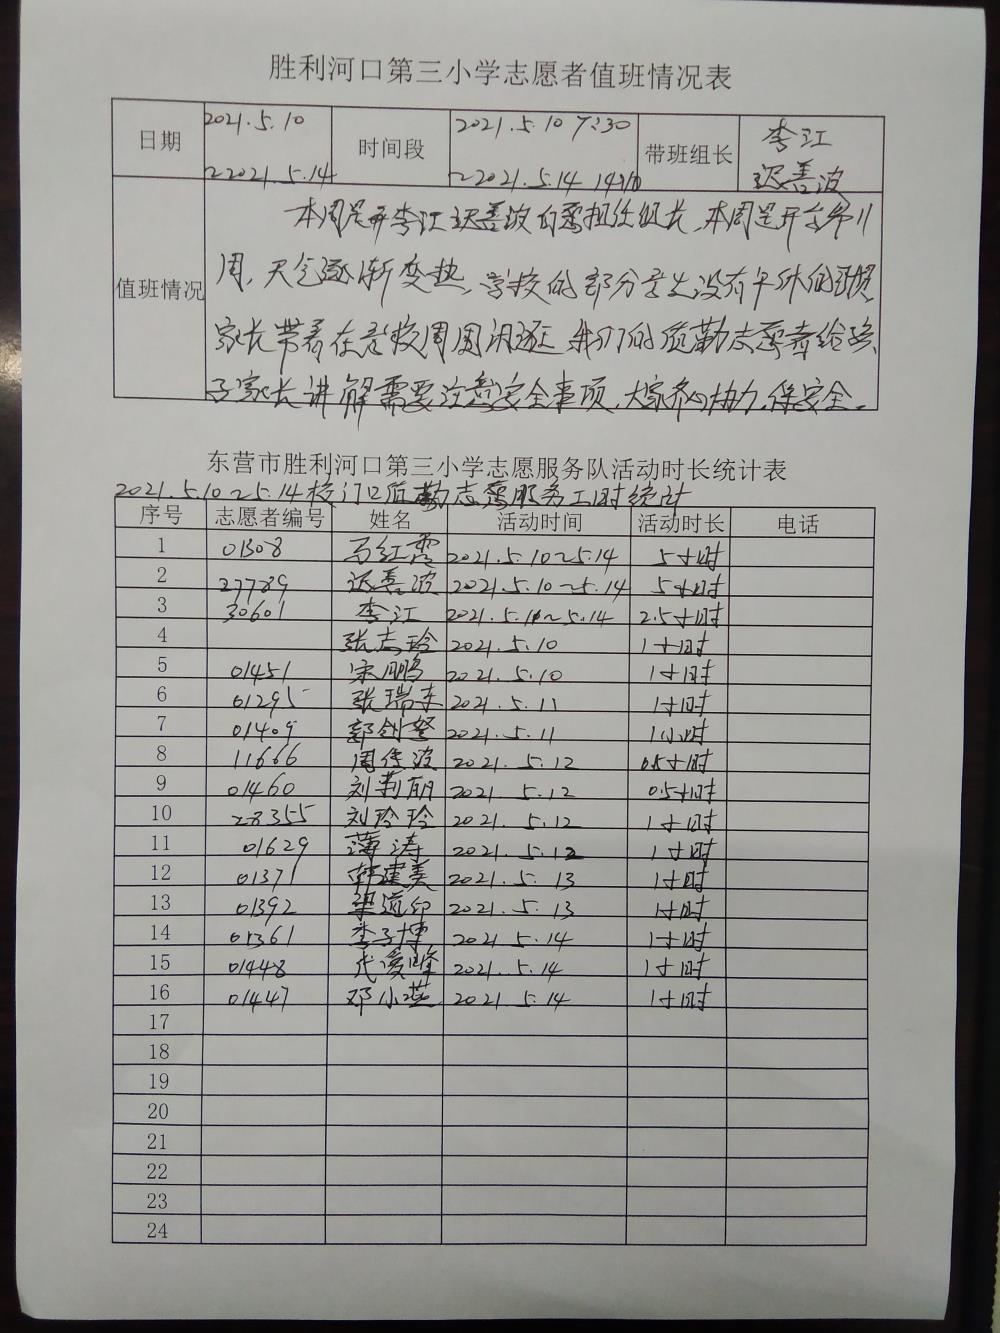 胜利河口第三小学志愿者值班情况表
日期 2021.5.10 ~2021.5.14 时间段 2021.5.10 7:30 ~2021.5.14 带班组长 李江 迟善波
值班情况
本周是 李江 迟善波 担任组长,本周是开 第11
周,天气逐渐变热,学校的部分学生没有午休的习惯,
家长带着在学校周围闲逛,我们的值勤志愿者给孩
子家长讲解需要注意安全事项,大家齐心协力,保安全。
东营市胜利河口第三小学志愿服务队活动时长统计表
2021.5.10~5.14校门口值勤志愿服务工时统计
序号 志愿者编号 姓名 活动时间 活动时长 电话
1 01308 马红霞 2021.5.10~5.14 5小时
2 27789 迟善波 2021.5.10~5.14 5小时
3 30601 李江 2021.5.10~5.14 2.5小时
4 张志玲 2021.5.10 1小时
5 01451 宋鹏 2021.5.10 1小时
6 01295 张瑞东 2021.5.11 1小时
7 01409 郭创 2021.5.11 1小时
8 11666 周传波 2021.5.12 0.5小时
9 01460 刘莉丽 2021.5.12 0.5小时
10 28355 刘玲玲 2021.5.12 1小时
11 01629 薄涛 2021.5.12 1小时
12 01371 韩建美 2021.5.13 1小时
13 01392 梁道印 2021.5.13 1小时
14 01361 李子博 2021.5.14 1小时
15 01448 2021.5.14 1小时
16 01447 邓小燕 2021.5.14 1小时
17
18
19
20
21
22
23
24